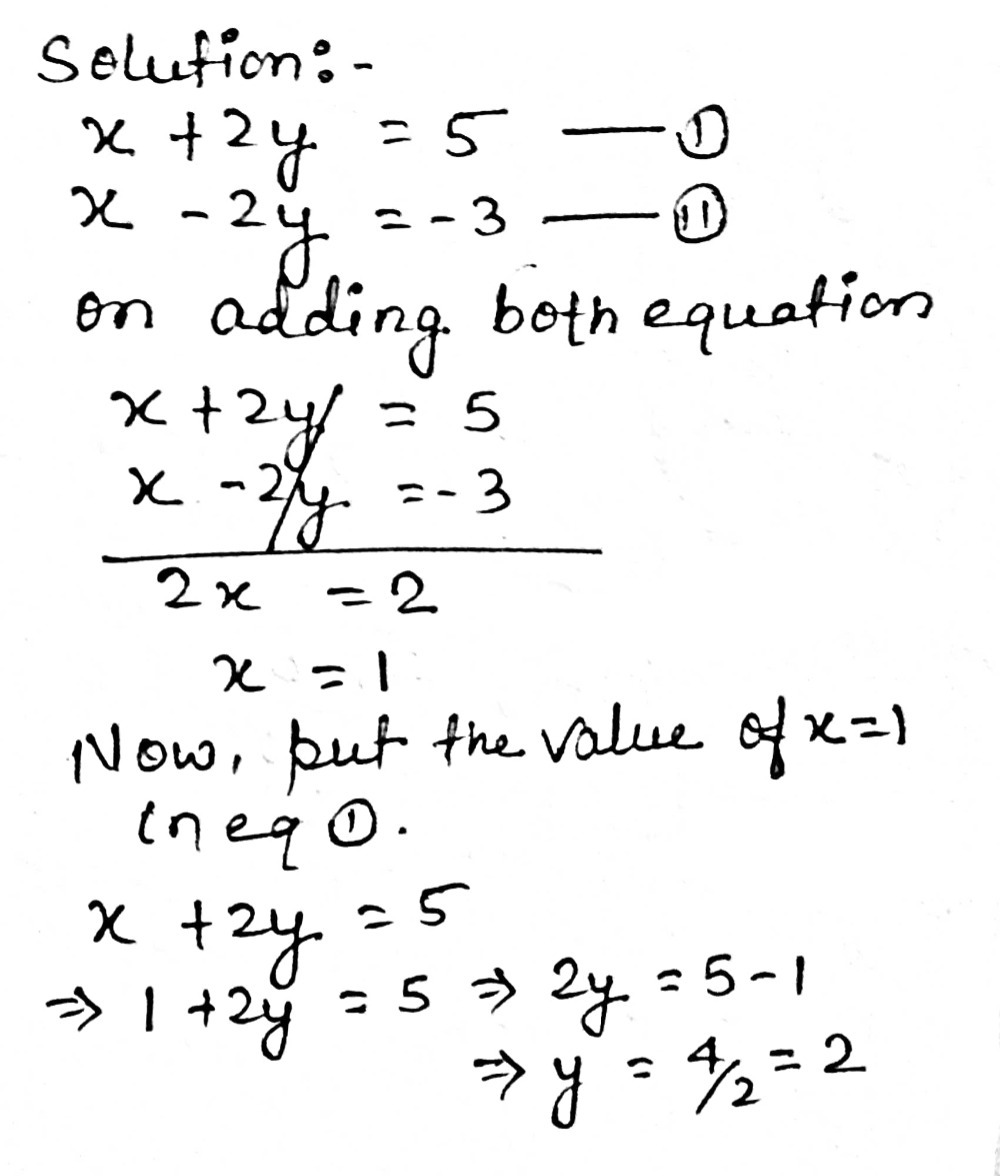 Solution:-
x + 2y = 5 — ①
x - 2y = -3 — ⑪
on adding both equation
x + 2y = 5
x - 2y = -3
2x = 2
x = 1
Now, put the value of x=1
in eq ①.
x + 2y = 5
⇒ 1 + 2y = 5 ⇒ 2y = 5-1
⇒ y = 4/2 = 2